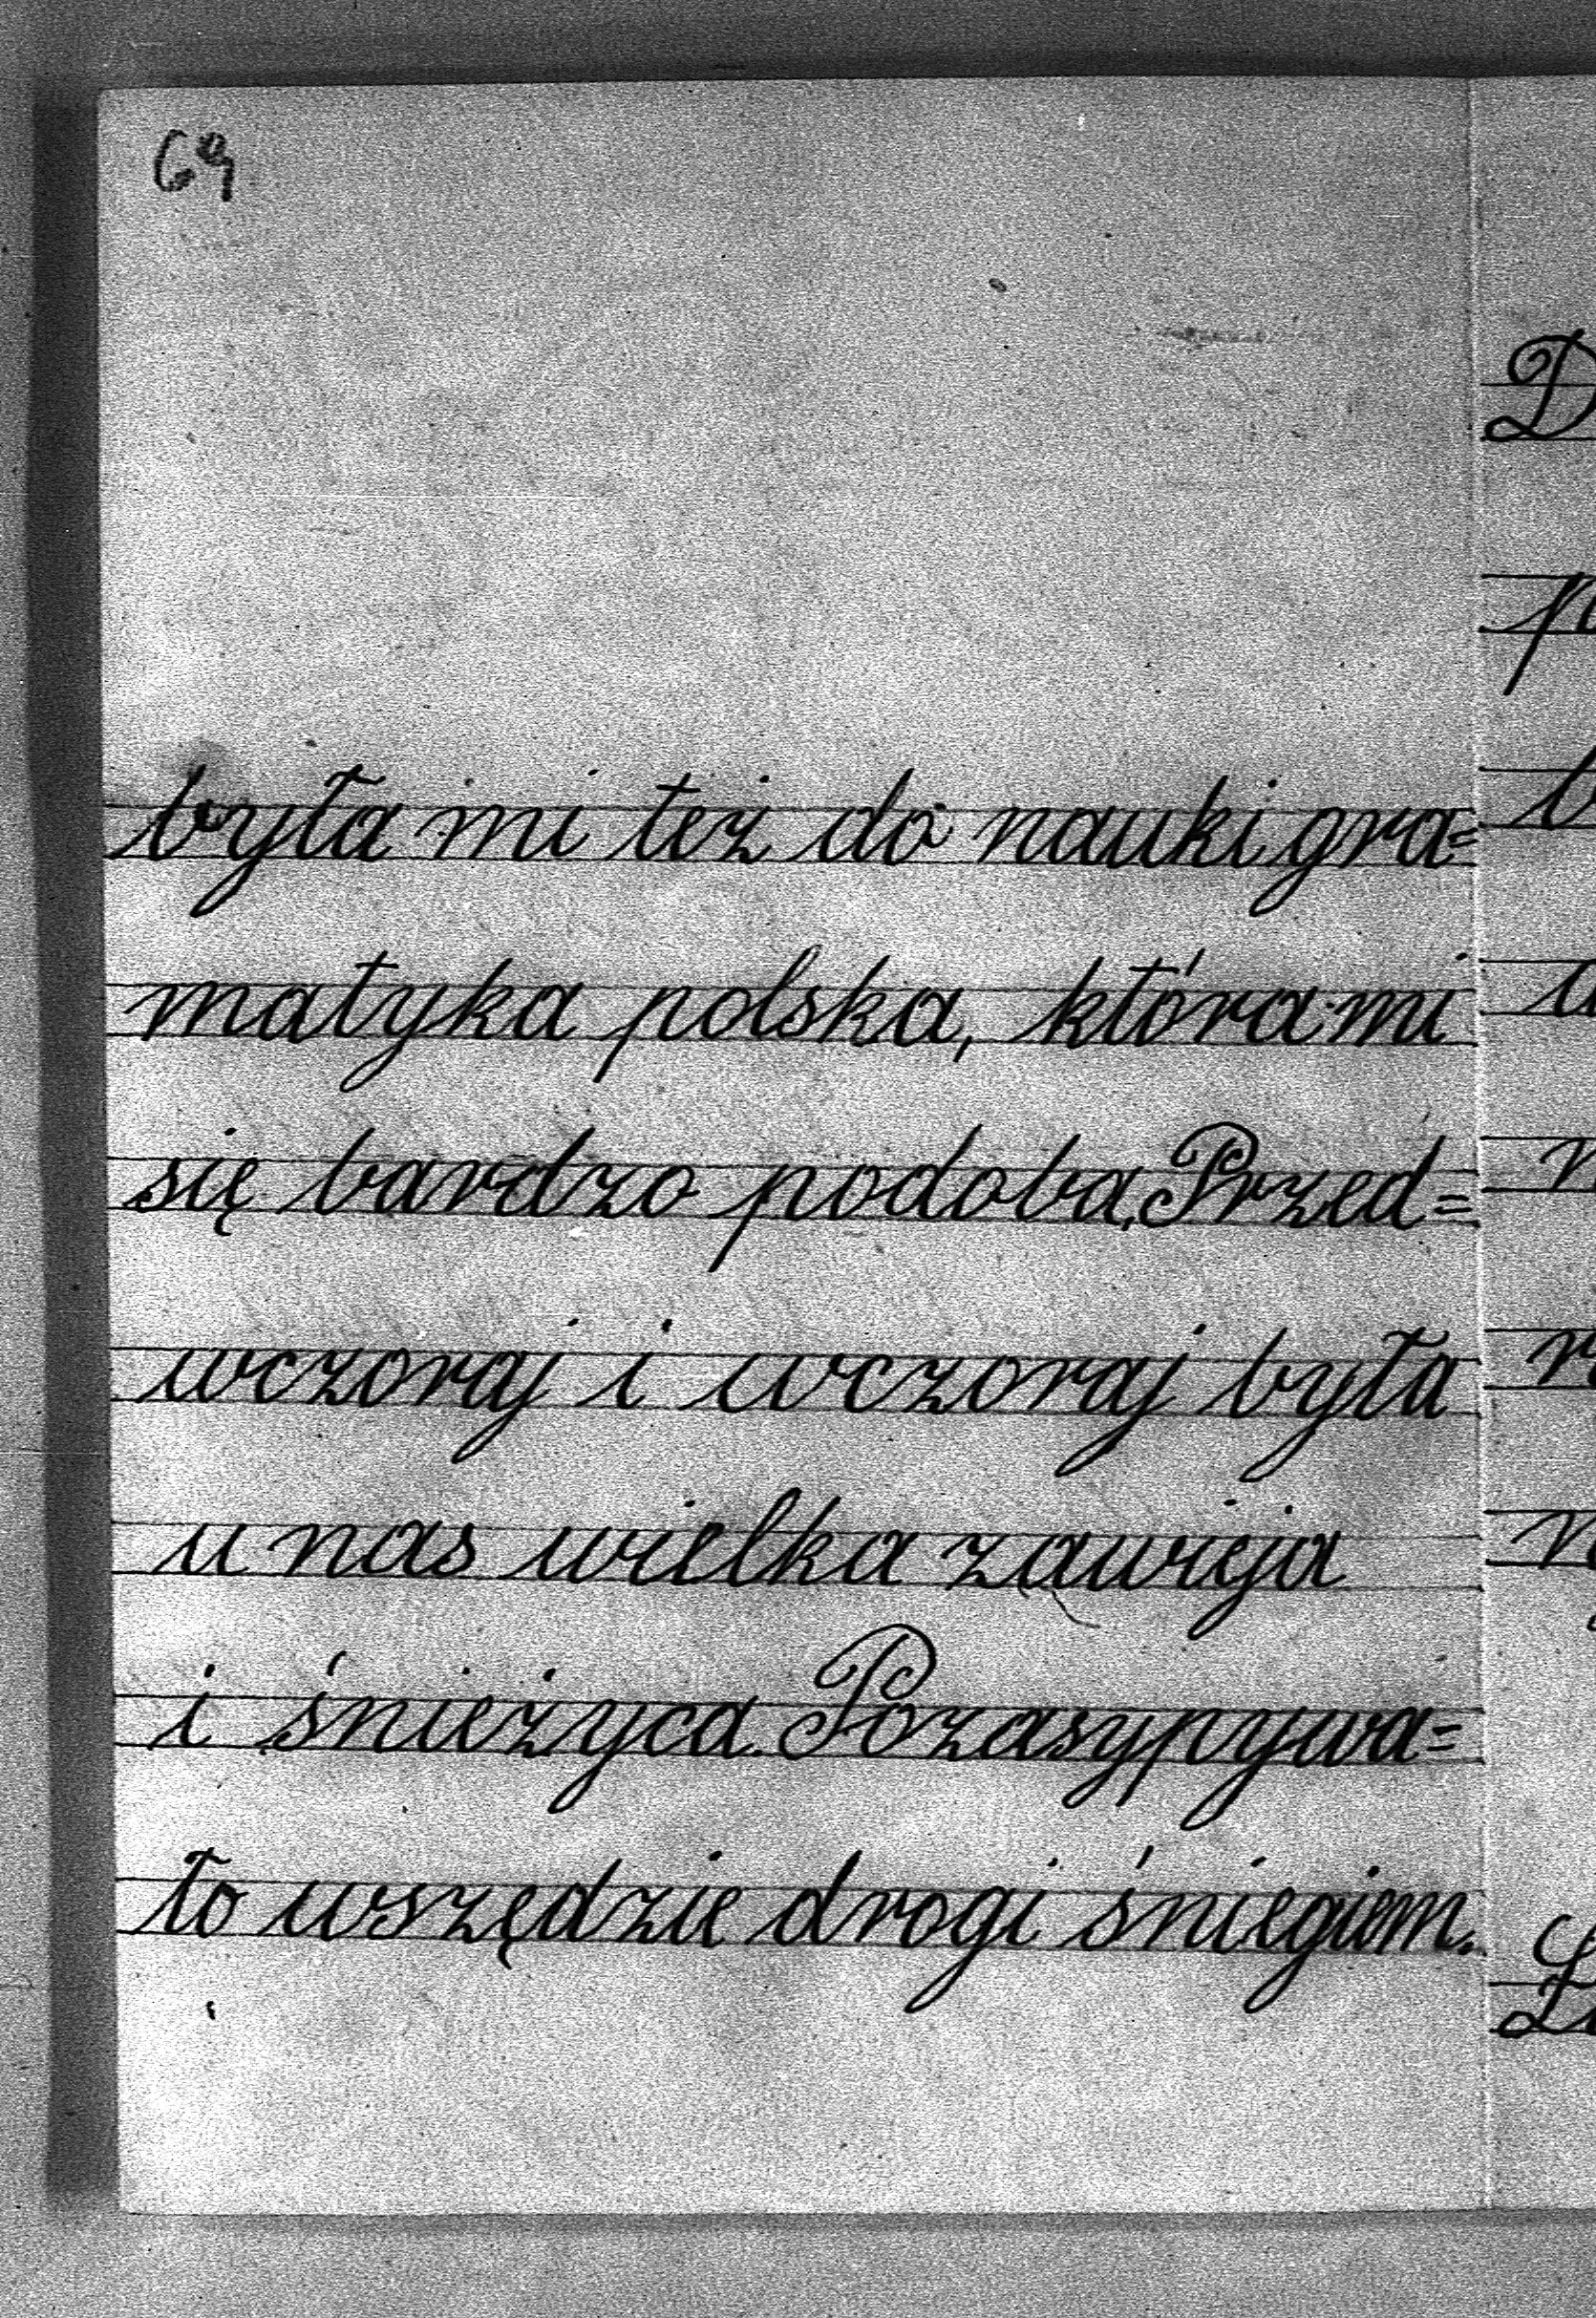 69
była mi też do nauki gra=
matyka polska, która mi
się bardzo podoba. Przed=
wczoraj i wczoraj była
u nas wielka zawieja
i śnieżyca. Pozasypywa=
ło wszędzie drogi śniegiem.